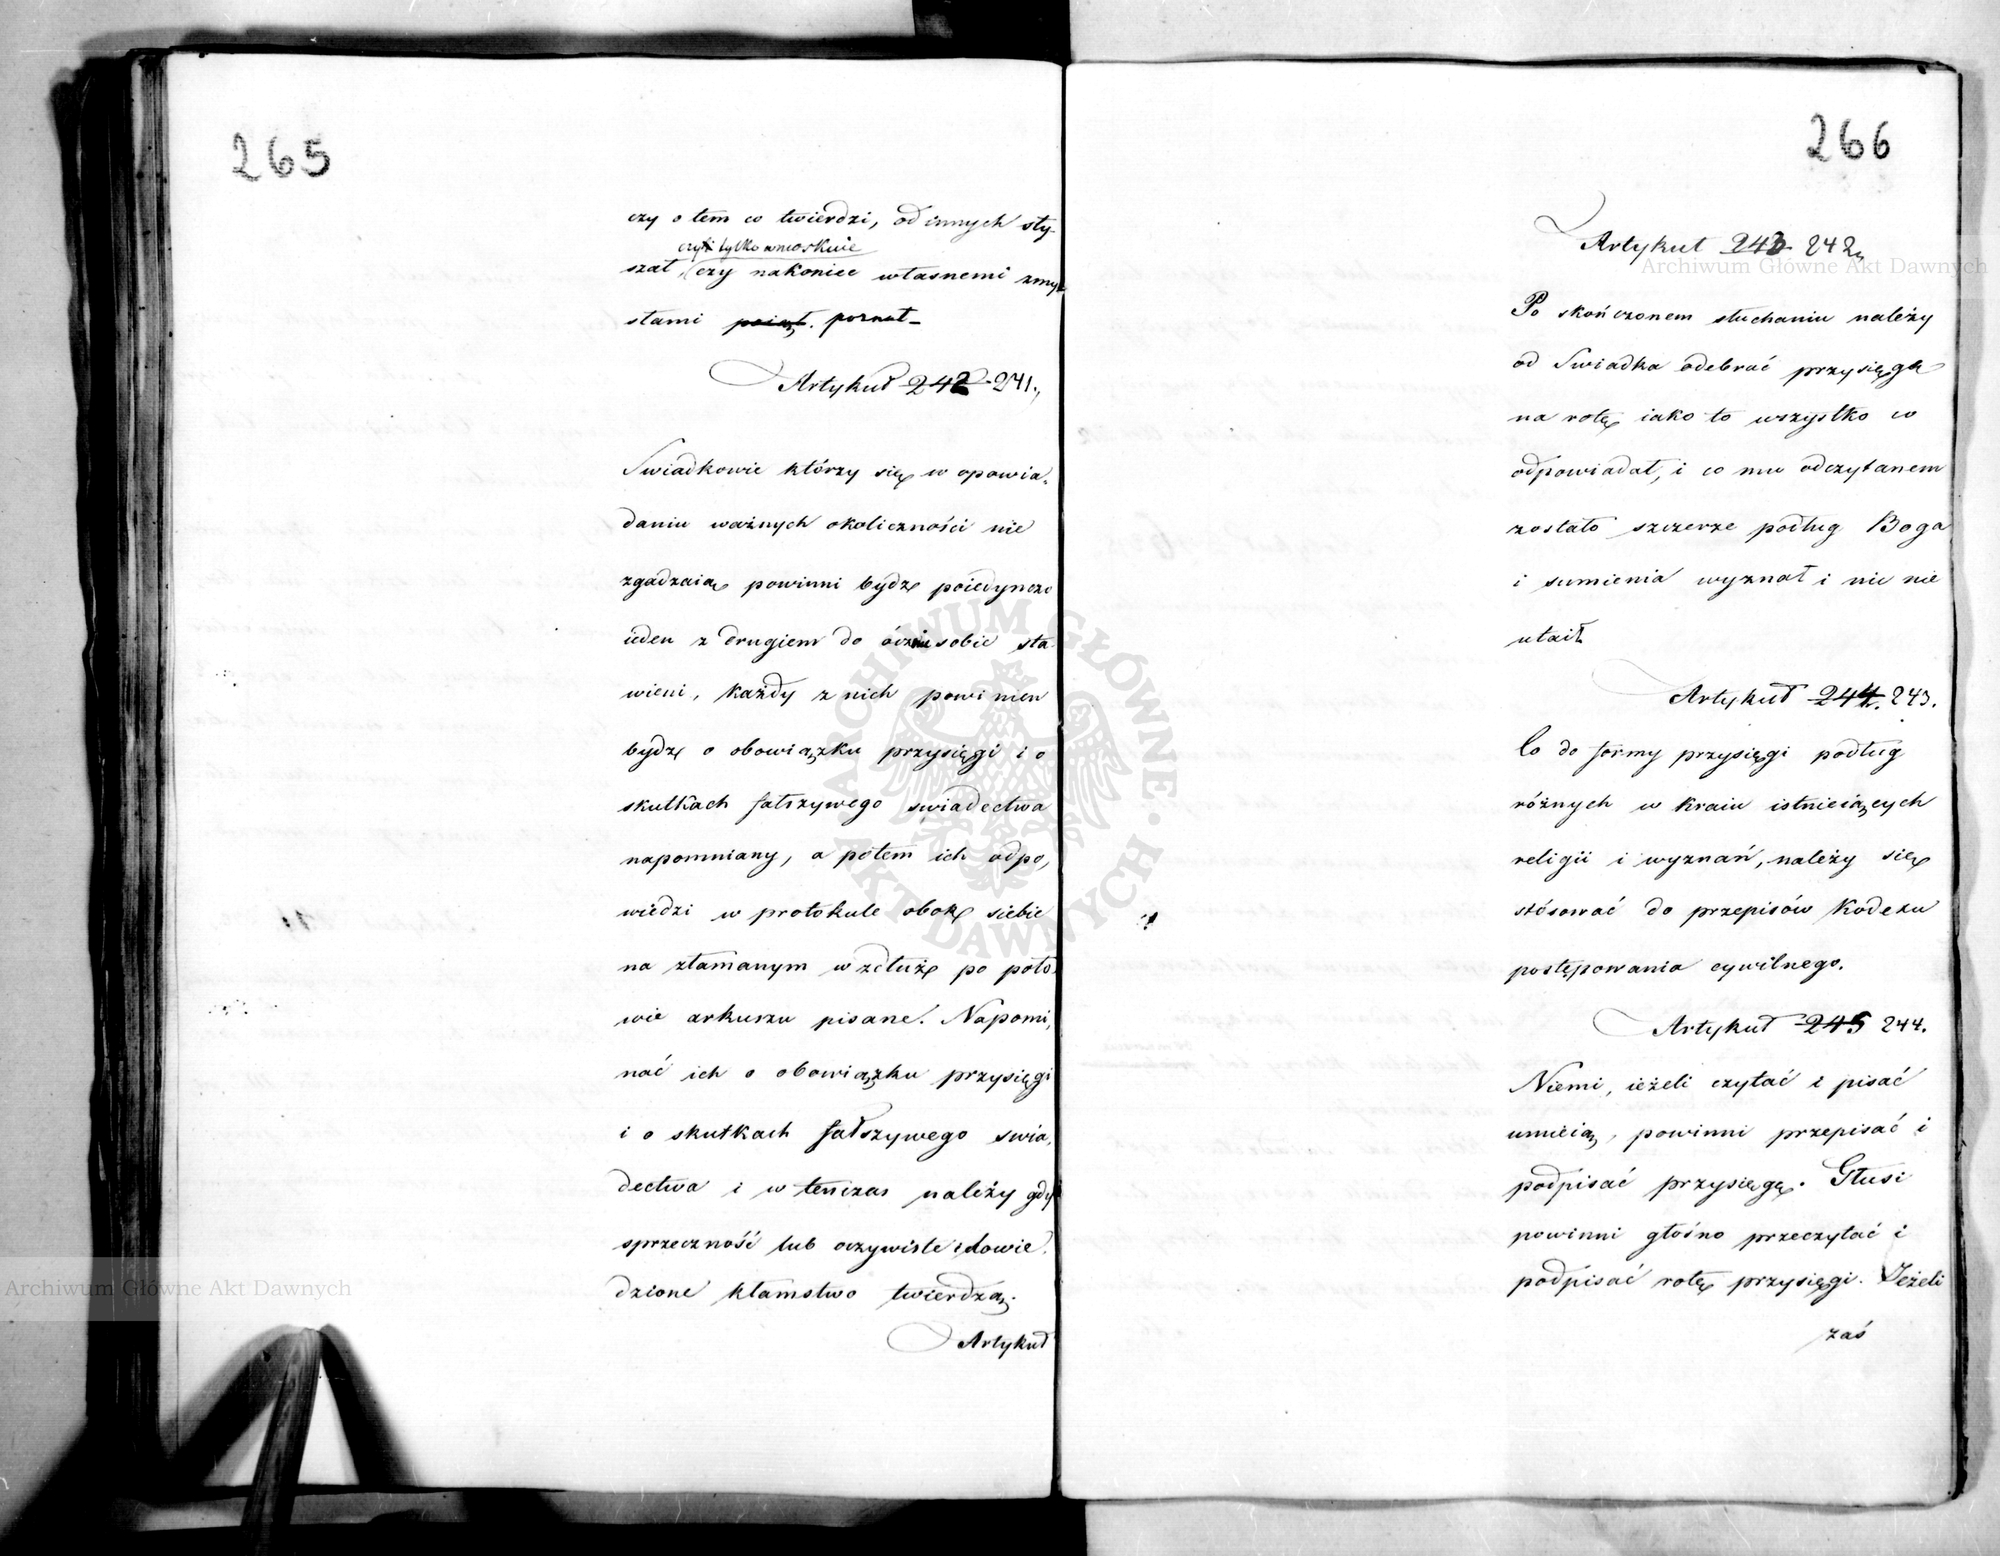 265
czy o tem co twierdzi, od innych sły-
czyli tylko wnioskuie
szał, czy nakoniec własnemi zmy-
słami poiął. poznał
Artykuł 242 241.
Swiadkowie którzy się w opowia-
daniu ważnych okoliczności nie
zgadzaią powinni bydź poiedynczo
ieden z drugiem do oczu sobie sta-
wieni, każdy z nich powinien
bydź o obowiązku przysięgi i o
skutkach fałszywego swiadectwa
napomniany, a potem ich odpo-
wiedzi w protokule obok siebie
na złamanym wzdłuż po poło-
wie arkuszu pisane. Napomi-
nać ich o obowiązku przysięgi
i o skutkach fałszywego swia-
dectwa i w tenczas należy gdy
sprzeczność lub oczywiste i dowie-
dzione kłamstwo twierdzą.
Artykuł
266
Artykuł 243 242.
Po skończonem słuchaniu należy
od Swiadka odebrać przysięgę
na rotę iako to wszystko co
odpowiadał, i co mu odczytanem
zostało szczerze podług Boga
i sumienia wyznał i nic nie
utaił
Artykuł 244. 243.
Co do formy przysięgi podług
różnych w kraiu istnieiących
religii i wyznań, należy się
stósować do przepisów Kodexu
postępowania cywilnego.
Artykuł 245 244.
Niemi, ieżeli czytać i pisać
umieią, powinni przepisać i
podpisać przysięgę. Głusi
powinni głośno przeczytać i
podpisać rotę przysięgi. Jeżeli
zaś
Archiwum Główne Akt Dawnych
Archiwum Główne Akt Dawnych
ARCHIWUM GŁÓWNE AKT DAWNYCH